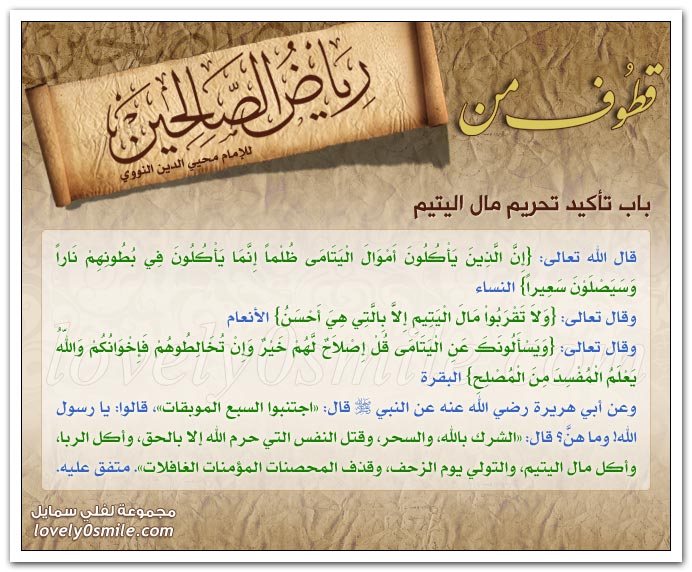 قطوف من
رِيَاضُ الصَّالِحِين
للإمام محيي الدين النووي
باب تأكيد تحريم مال اليتيم
قال الله تعالى: {إِنَّ الَّذِينَ يَأْكُلُونَ أَمْوَالَ الْيَتَامَى ظُلْماً إِنَّمَا يَأْكُلُونَ فِي بُطُونِهِمْ نَاراً
وَسَيَصْلَوْنَ سَعِيراً} النساء
وقال تعالى: {وَلاَ تَقْرَبُواْ مَالَ الْيَتِيمِ إِلاَّ بِالَّتِي هِيَ أَحْسَنُ} الأنعام
وقال تعالى: {وَيَسْأَلُونَكَ عَنِ الْيَتَامَى قُلْ إِصْلاَحٌ لَّهُمْ خَيْرٌ وَإِنْ تُخَالِطُوهُمْ فَإِخْوَانُكُمْ وَاللَّهُ
يَعْلَمُ الْمُفْسِدَ مِنَ الْمُصْلِحِ} البقرة
وعن أبي هريرة رضي الله عنه عن النبي ﷺ قال: «اجتنبوا السبع الموبقات»، قالوا: يا رسول
الله! وما هنَّ؟ قال: «الشرك بالله، والسحر، وقتل النفس التي حرم الله إلا بالحق، وأكل الربا،
وأكل مال اليتيم، والتولي يوم الزحف، وقذف المحصنات المؤمنات الغافلات». متفق عليه.
lovely0smile.com
مجموعة لفلي سمايل
lovely0smile.com